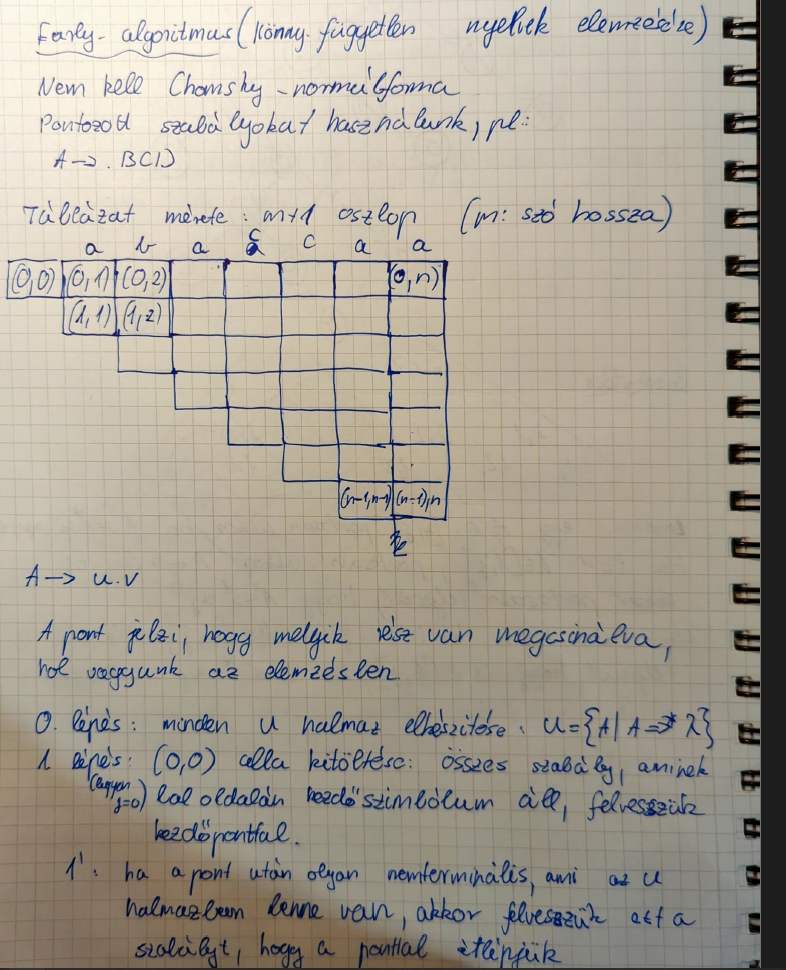 Early-algoritmus (könny. független nyelvek elemzésére)
Nem kell Chomsky-normálforma
Pontozott szabályokat használunk, pl:
A → . BCD
Táblázat mérete: m+1 oszlop (m: szó hossza)
a b a c c a a
(0,0) (0,1) (0,2) (0,n)
(1,1) (1,2)
(n-1,n-1) (n-1),n
A → u.v
A pont jelzi, hogy melyik rész van megcsinálva,
hol vagyunk az elemzésben.
0. lépés: minden U halmaz elkészítése: U={A| A ⇒* λ}
1 lépés: (0,0) cella kitöltése: összes szabály, aminek
(legyen j=0) bal oldalán kezdőszimbólum áll, felvesszük
kezdőponttal.
1': ha a pont után olyan nemterminális, ami az U
halmazban benne van, akkor felvesszük azt a
szabályt, hogy a ponttal átlépjük